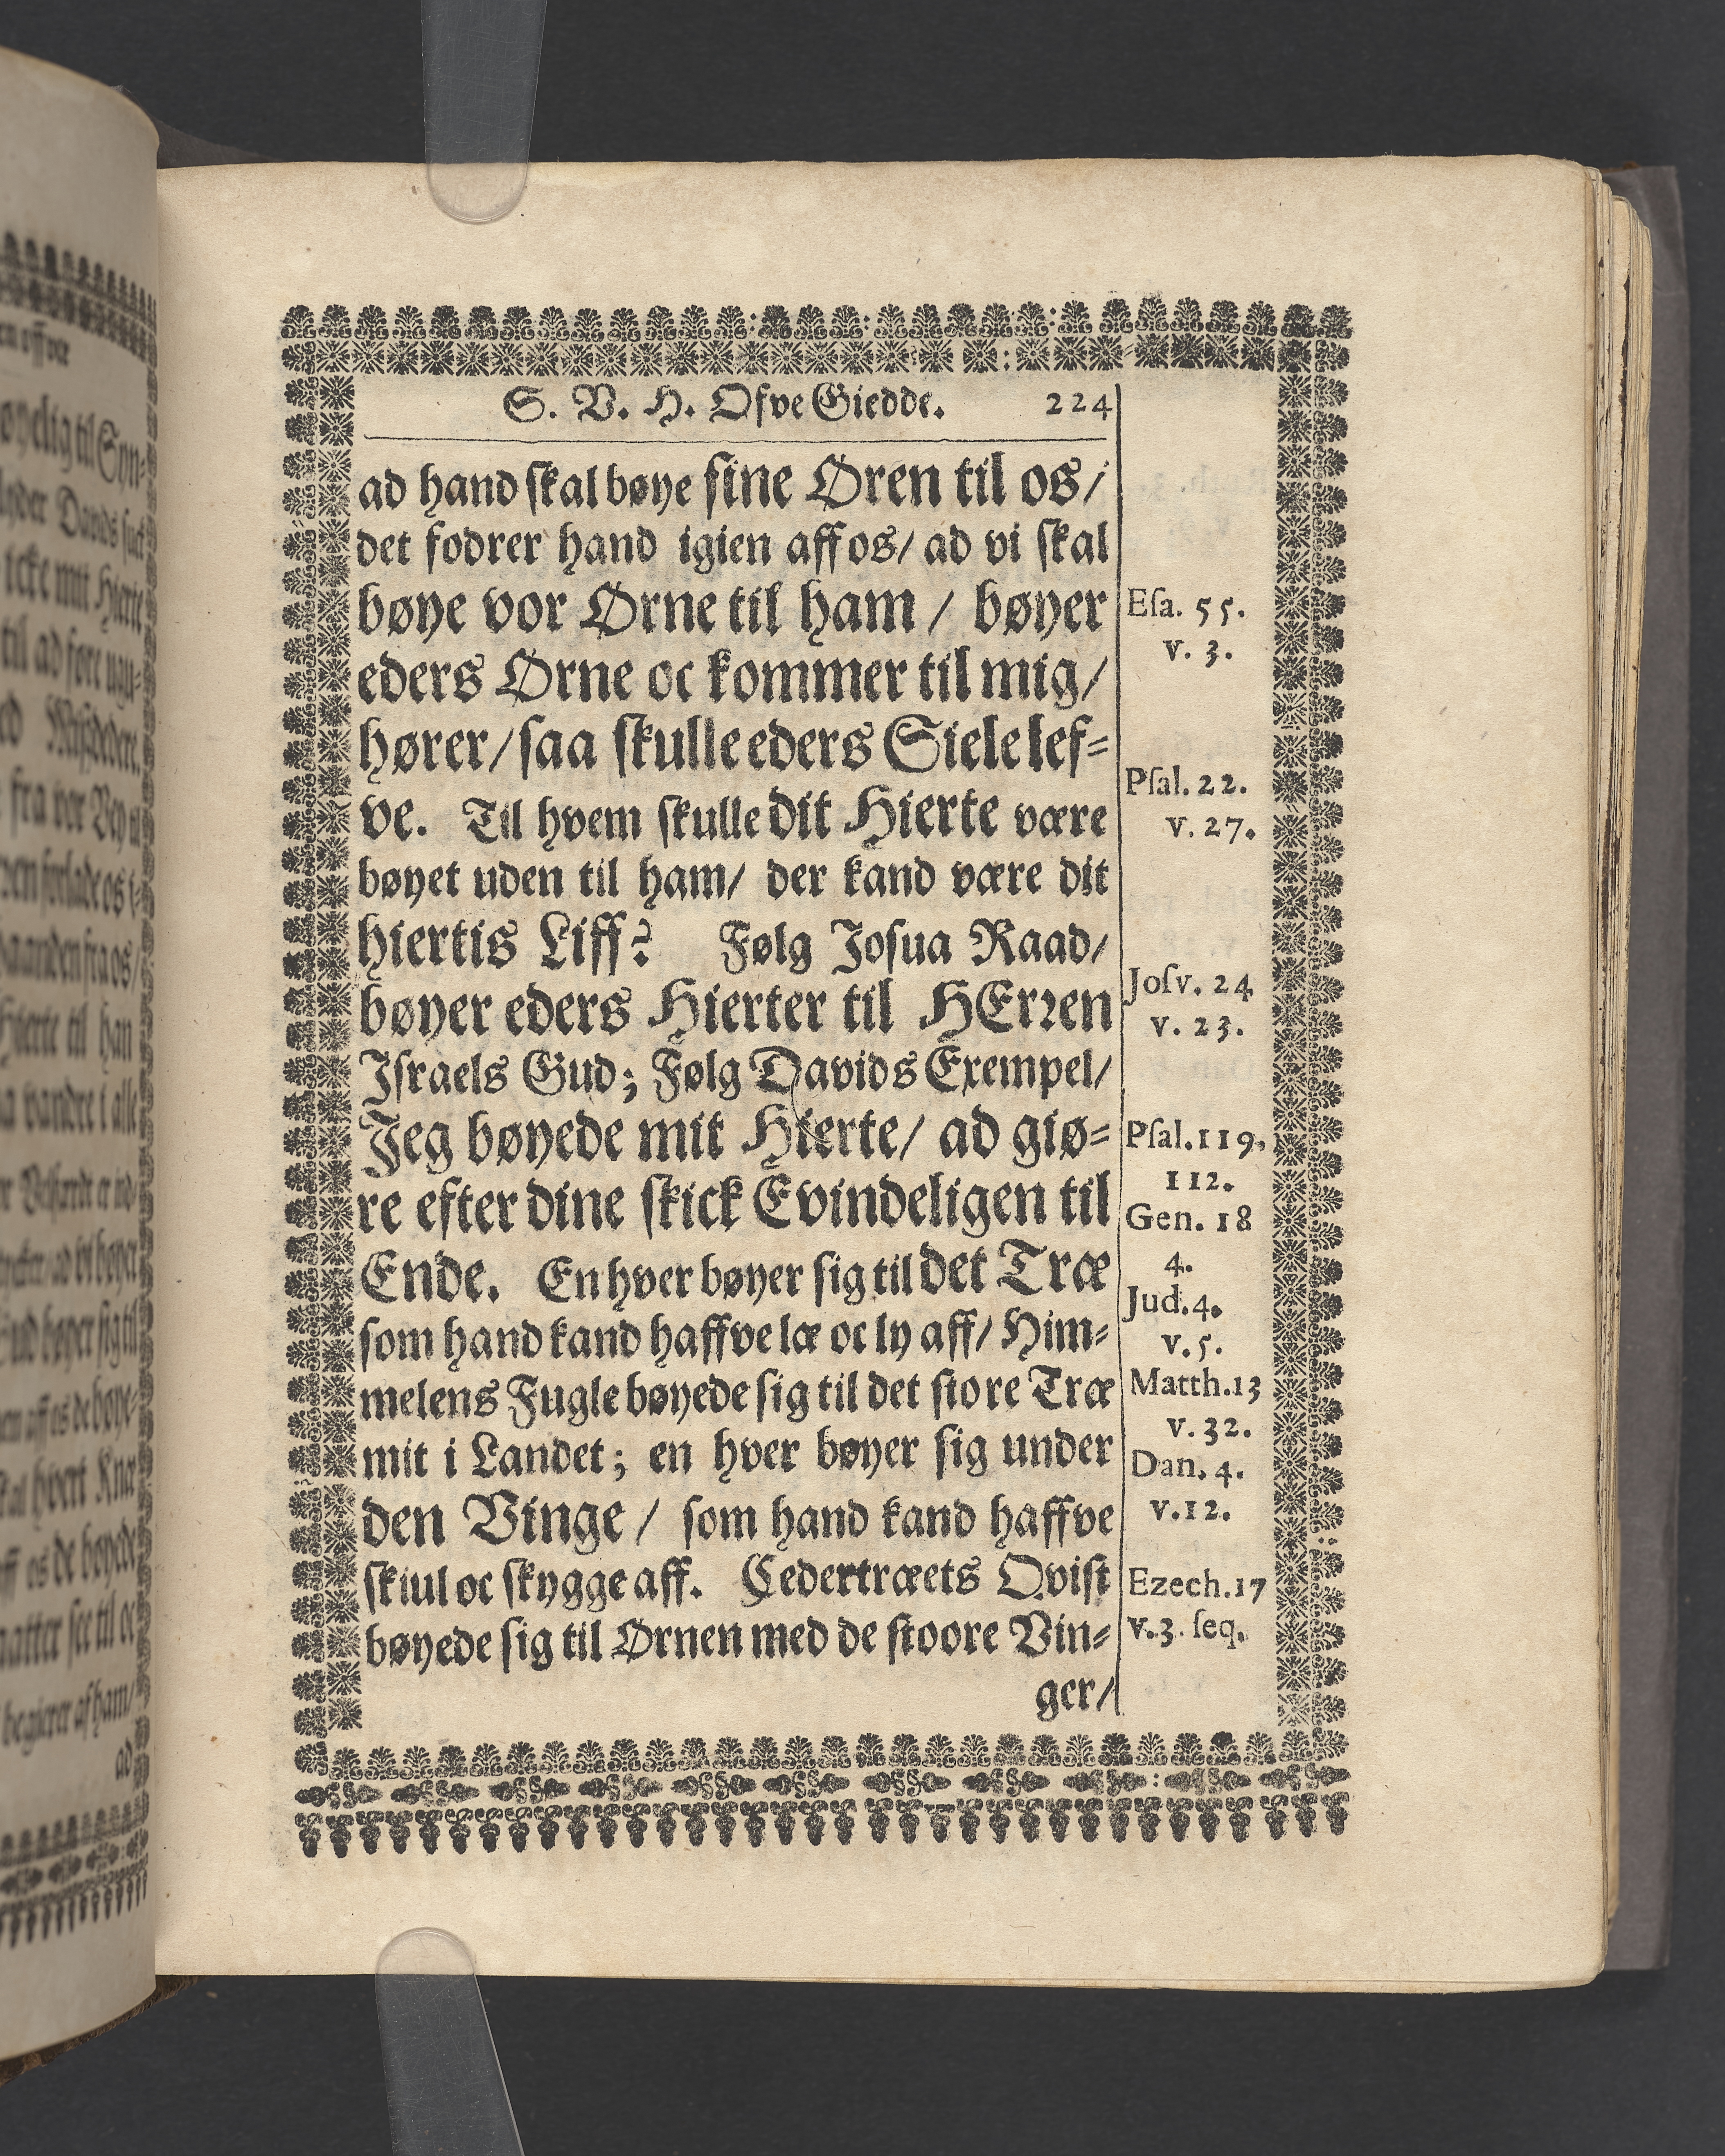 S. V. H. Ofve Giedde. 224
ad hand skal bøye sine Øren til os/
det fodrer hand igien aff os/ ad vi skal
bøye vor Ørne til ham / bøyer
eders Ørne oc kommer til mig/
hører/ saa skulle eders Siele lef-
ve. Til hvem skulle dit Hierte være
bøyet uden til ham/ der kand være dit
hiertis Liff? Følg Josua Raad/
bøyer eders Hierter til HErren
Israels Gud; Følg Davids Exempel/
Jeg bøyede mit Hierte/ ad giø-
re efter dine skick Evindeligen til
Ende. En hver bøyer sig til det Træ
som hand kand haffve læ oc ly aff/ Him-
melens Fugle bøyede sig til det store Træ
mit i Landet; en hver bøyer sig under
den Vinge / som hand kand haffve
skiul oc skygge aff. Cedertræets Qvist
bøyede sig til Ørnen med de stoore Vin-
ger/
Esa. 55.
v. 3.
Psal. 22.
v. 27.
Josv. 24
v. 23.
Psal. 119.
112.
Gen. 18
4.
Jud. 4.
v. 5.
Matth. 13
v. 32.
Dan. 4.
v. 12.
Ezech. 17
v. 3. seq.